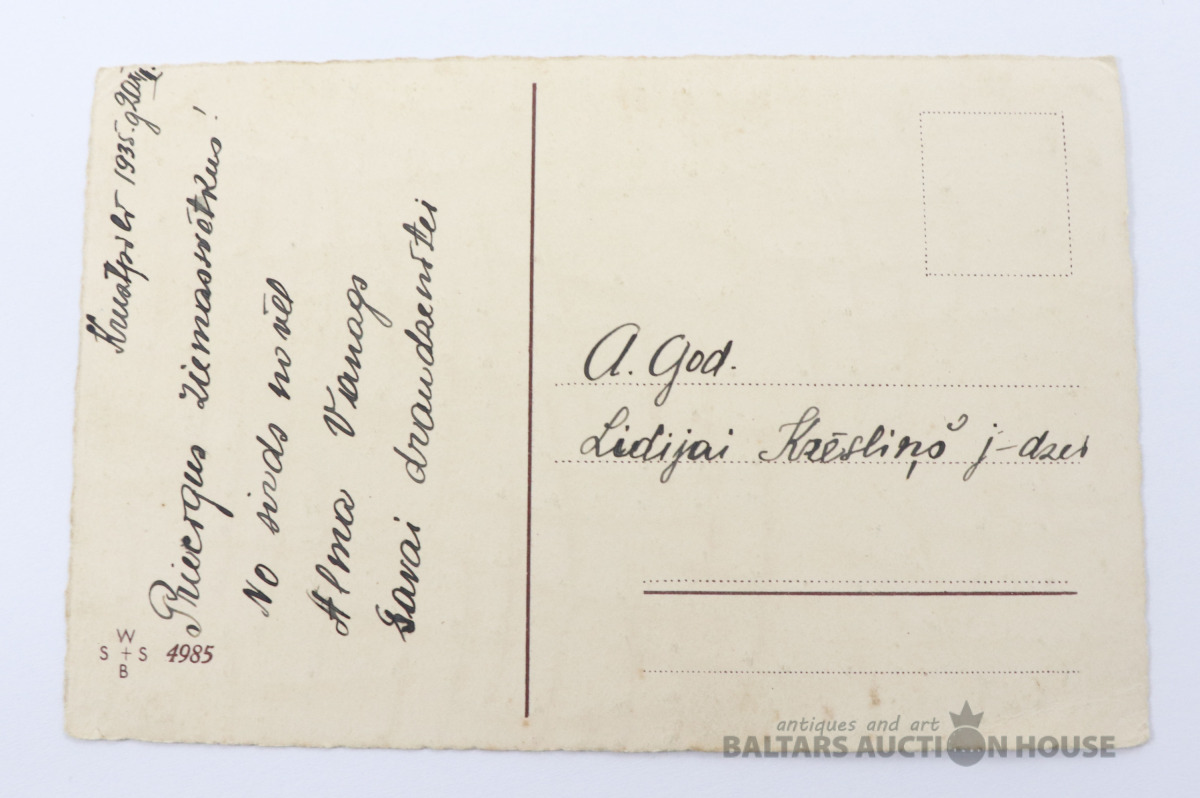 Krustpilī 1935. g.
Priecīgus Ziemassvētkus!
No sirds novēl
Alma Vanags
Savai draudzenītei
A. God.
Lidijai Krēsliņš j-dzei
W
S + S 4985
B
antiques and art
BALTARS AUCTION HOUSE